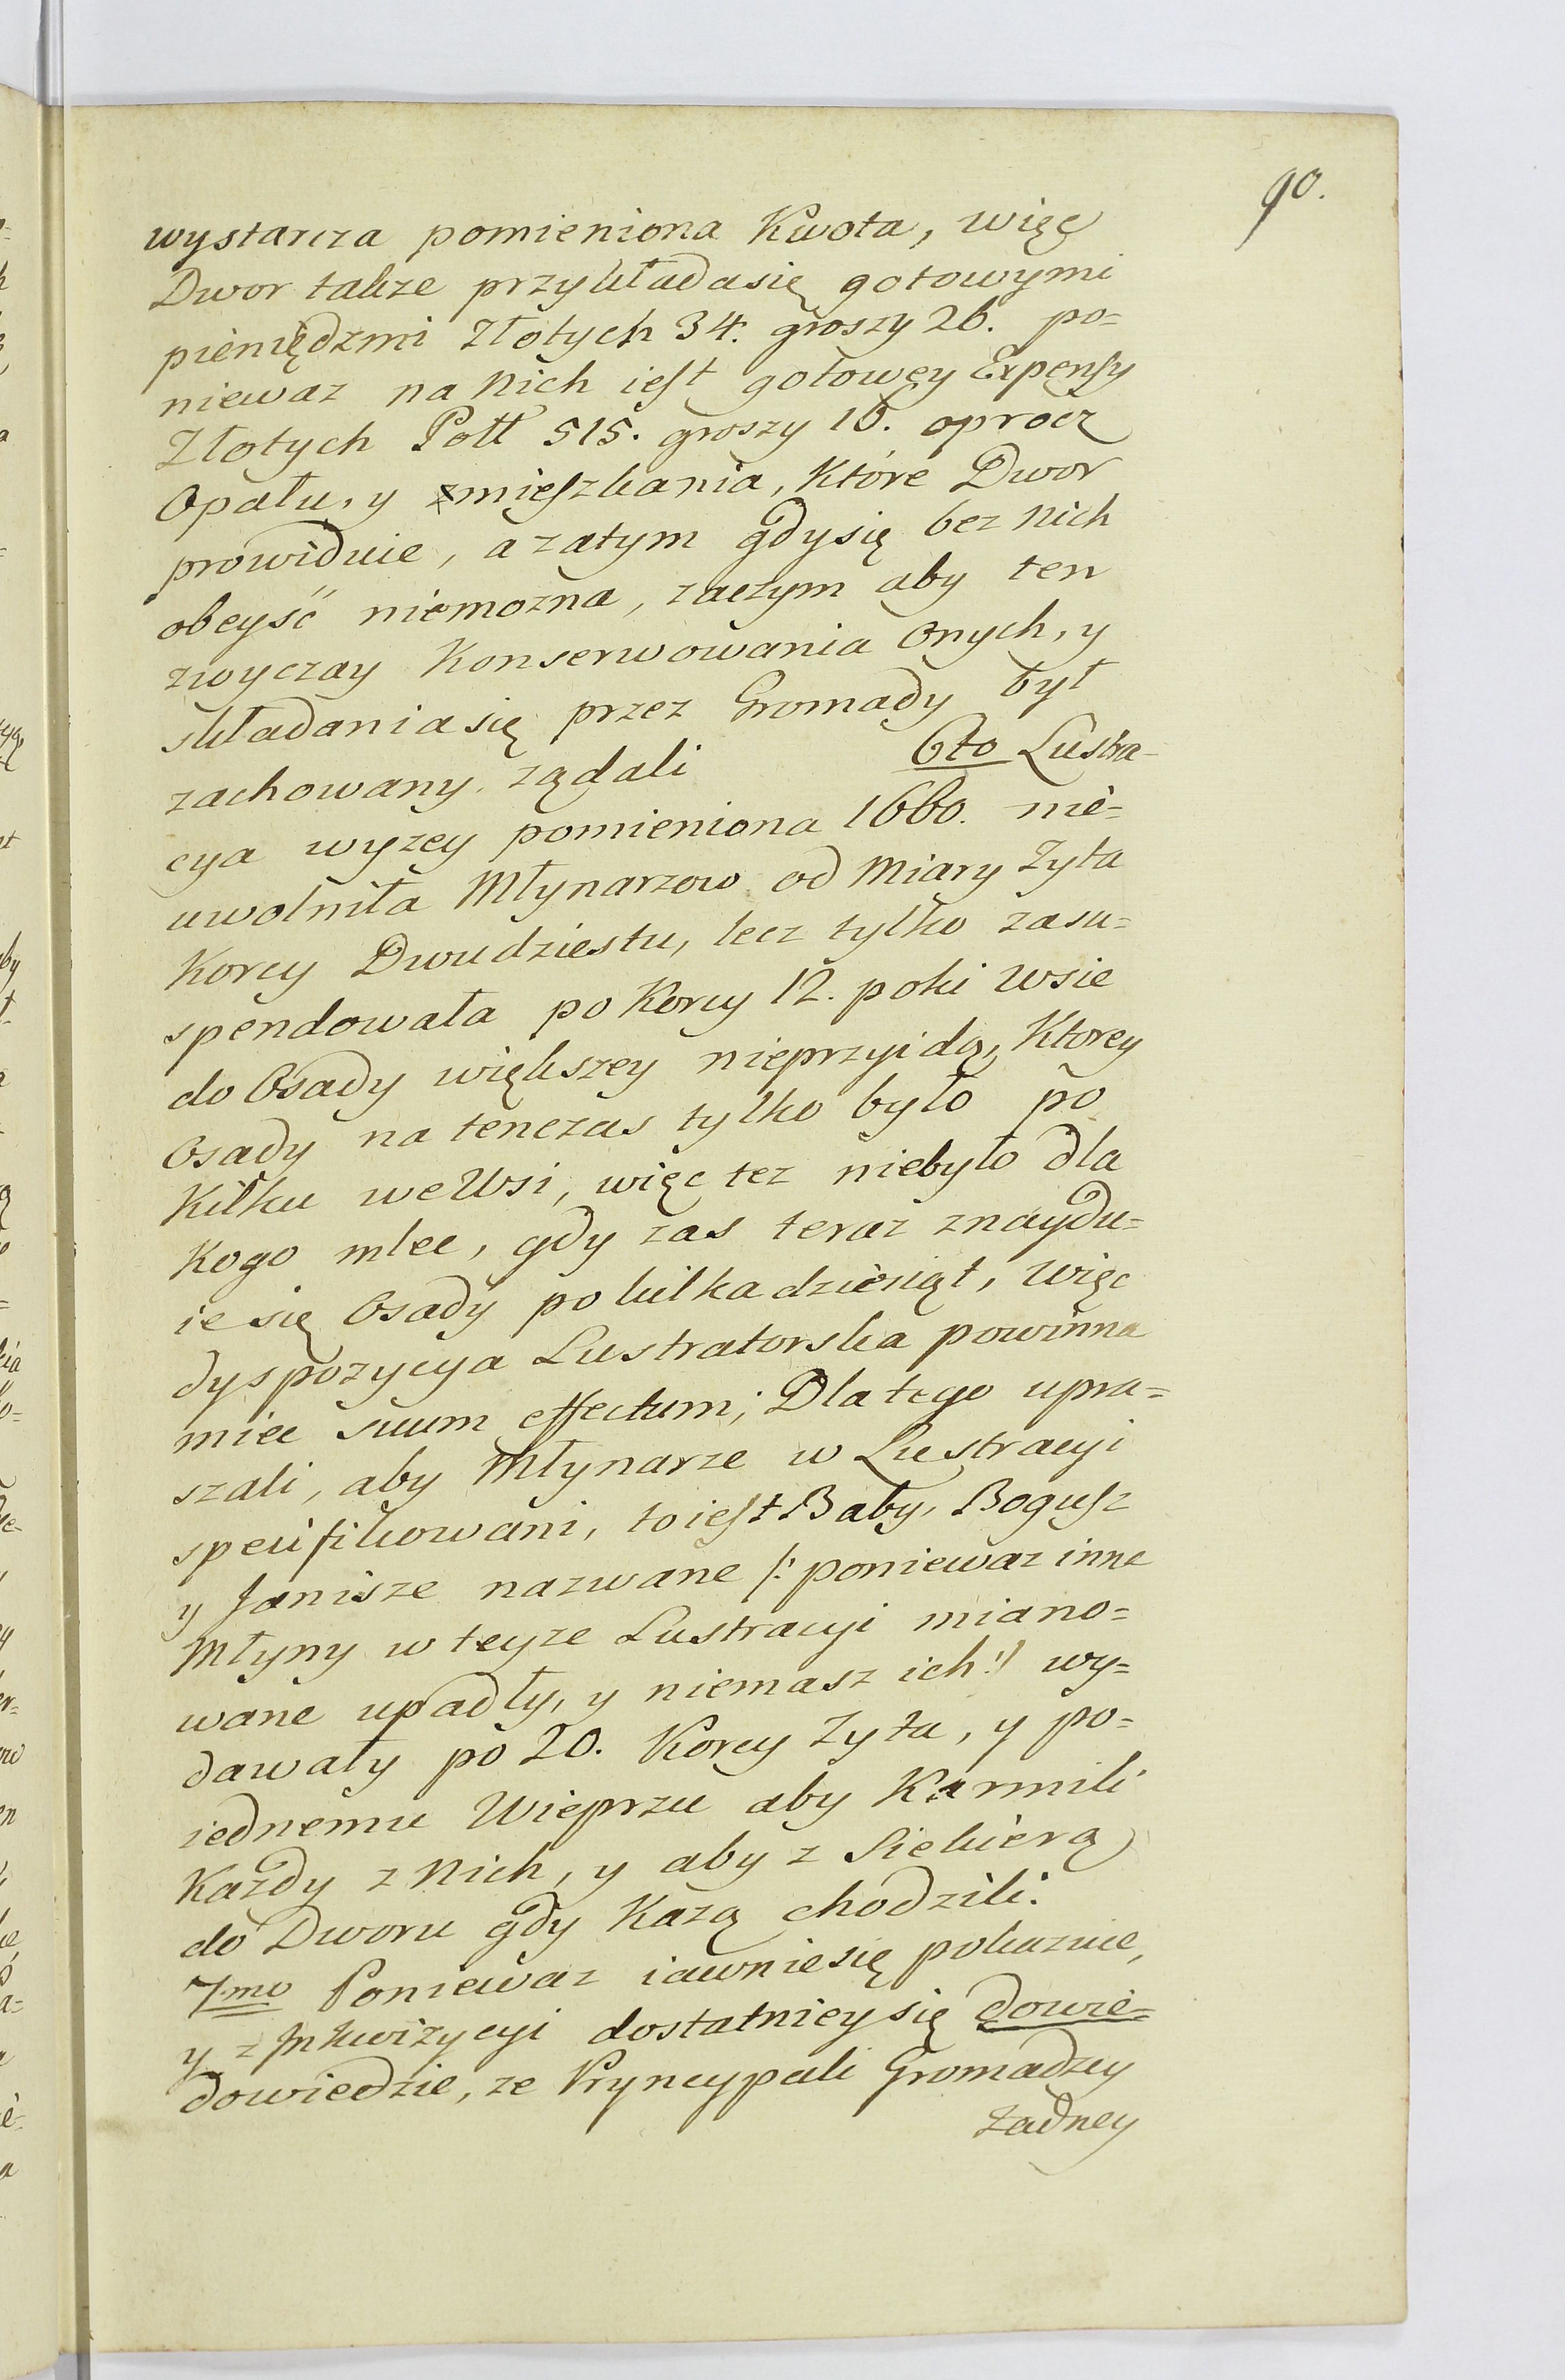 90.
wystarcza pomieniona Kwota, więc
Dwor takze przykłada się gotowymi
pieniędzmi Złotych 34. groszy 26. po=
niewaz na nich iest gotowey Expensy
Złotych Poll 515. groszy 16. oprocz
Opału, y mieszkania, Które Dwor
prowiduie, a zatym gdy się bez nich
obeyść niemozna, zaczym aby ten
zwyczay Konserwowania Onych, y
składania się przez Gromady był
zachowany ządali 6to Lustra-
cya wyzey pomieniona 1660. nie=
uwolniła Młynarzow od Miary Zyta
Korcy Dwudziestu, lecz tylko zasu=
spendowała po Korcy 12. poki Wsie
do Osady większey nieprzyidą, Ktorey
Osady na tenczas tylko było po
Kilku we Wsi, więc tez niebyło dla
Kogo mlec, gdy zas teraz znaydu=
ie się Osady po kilkadziesiąt, więc
dyspozycya Lustratorska powinna
miec suum effectum; Dla tego upra=
szali, aby Młynarze w Lustracyi
specifikowani, to iest Baby, Bogusz
y Janisze nazwane /: poniewaz inne
Młyny w teyze Lustracyi miano=
wane upadły, y niemasz ich :/ wy=
dawały po 20. Korcy Zyta, y po=
iednemu Wieprzu aby Karmili
Kazdy z Nich, y aby z Siekierą
do Dworu gdy Kazą chodzili.
7mo Poniewaz iawnie się pokazuie,
y z Inkwizycyi dostatniey się dowie=
dowiedzie, ze Pryncypali Gromadzcy
Zadney